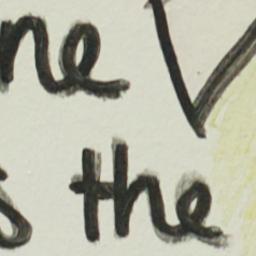 ne V
s the